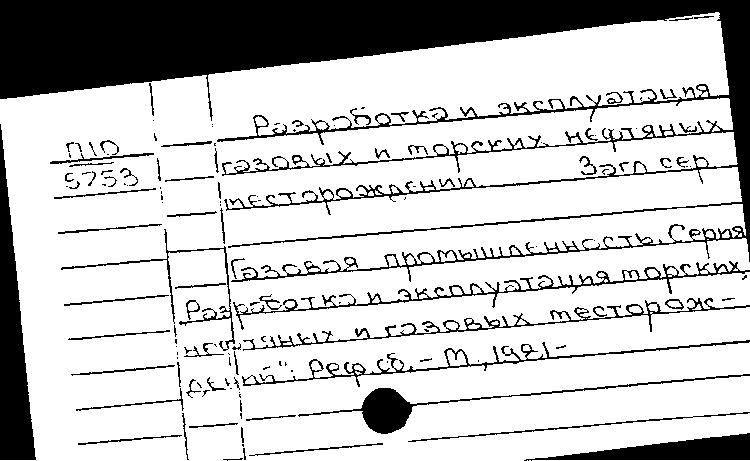 П10
5753
Разработка и эксплуатация
газовых и морских нефтяных
месторождений. Загл. сер.
Газовая промышленность. Серия
Разработка и эксплуатация морских
нефтяных и газовых месторож-
дений": Реф. сб. - М., 1981-